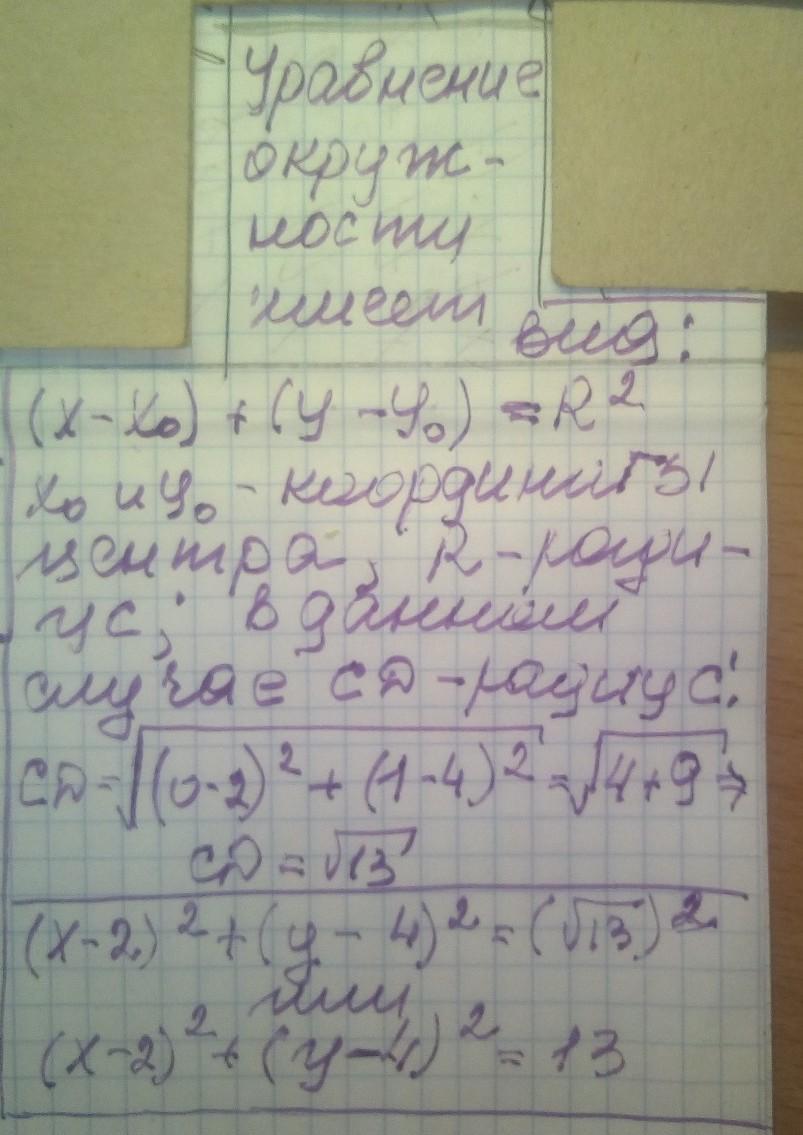 Уравнение
окруж-
ности
имеет вид:
(x-x₀) + (y-y₀) = R²
x₀ и y₀ - координаты
центра, R-ради-
ус; в данном
случае CD-радиус:
CD=√(0-2)²+(1-4)²=√4+9⇒
CD=√13
(x-2)²+(y-4)²=(√13)²
или
(x-2)²+(y-4)²=13